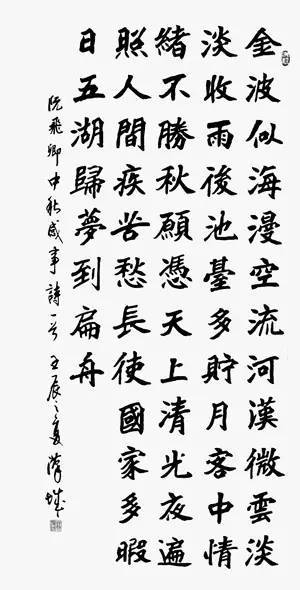 金波似海漫空流河漢微雲淡
淡收雨後池臺多貯月客中情
緒不勝秋願憑天上清光夜遍
照人間疾苦愁長使國家多暇
日五湖歸夢到扁舟
阮飛卿中秋感事詩一首 壬辰之夏